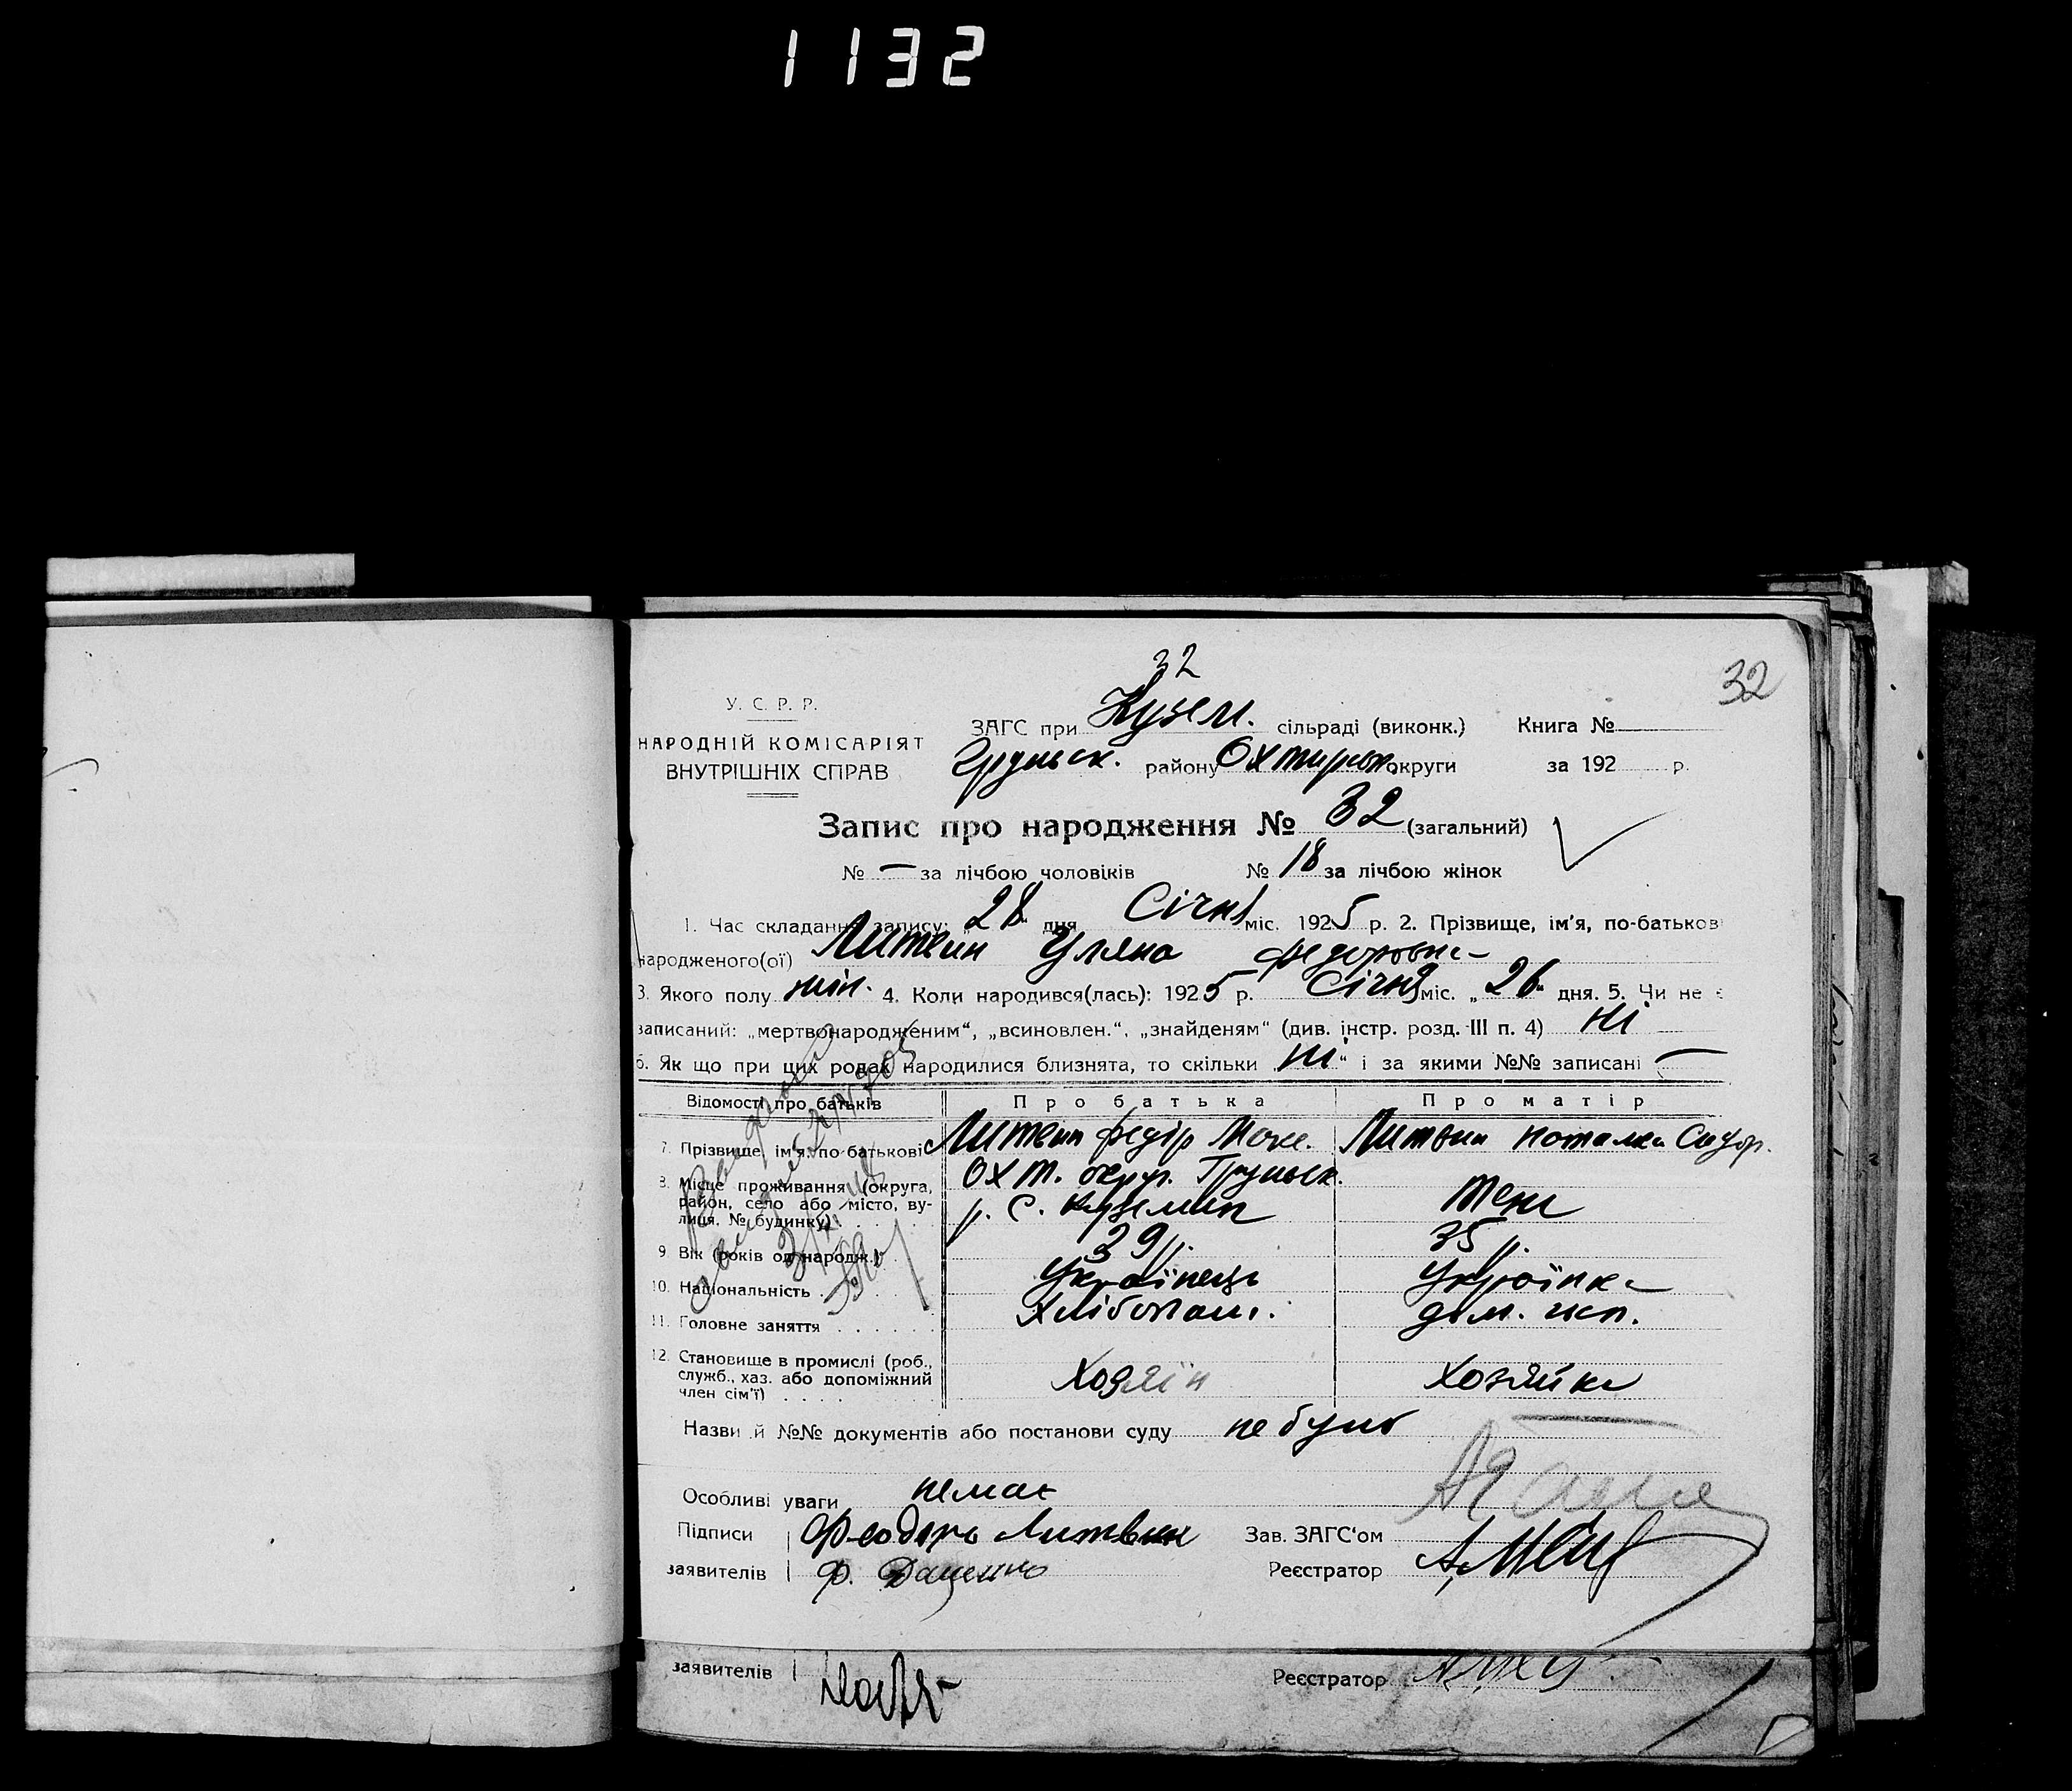 1132
32
32
У. С. Р. Р.
НАРОДНІЙ КОМІСАРІЯТ
ВНУТРІШНІХ СПРАВ
ЗАГС при Кузем. сільраді (виконк.) Книга №
Грунськ. району Охтирськ. округи за 192 р.
Запис про народження № 32 (загальний)
№ — за лічбою чоловіків № 18 за лічбою жінок
1. Час складання запису: „28“ дня Січня міс. 1925 р. 2. Прізвище, ім'я, по-батькові
народженого(ої) Литвин Уляна Федоровна
3. Якого полу жін. 4. Коли народився(лась): 1925 р. Січня міс. „26“ дня. 5. Чи не є
записаний: „мертвонародженим“, „всиновлен.“, „знайденям“ (див. інстр. розд. III п. 4) ні
6. Як що при цих родах народилися близнята, то скільки „ні“ і за якими №№ записані —
Відомості про батьків Про батька Про матір
7. Прізвище, ім'я, по-батькові Литвин Федір Литвин Наталка Сидор.
8. Місце проживання (округа, район, село або місто, вулиця, № будинку) Охт. окр. Грунськ. р. с. Куземин Теж
9. Вік (років од народж.) 39 р. 35 р.
10. Національність Українець Українка
11. Головне заняття Хлібопаш. дом. госп.
12. Становище в промислі (роб., служб., хаз. або допоміжний член сім'ї) Хозяїн Хозяйка
Назви й №№ документів або постанови суду не було
Особливі уваги немає
Підписи Феодоръ Литвин Зав. ЗАГС'ом
заявителів Ф. Даценко Реєстратор
заявителів Реєстратор